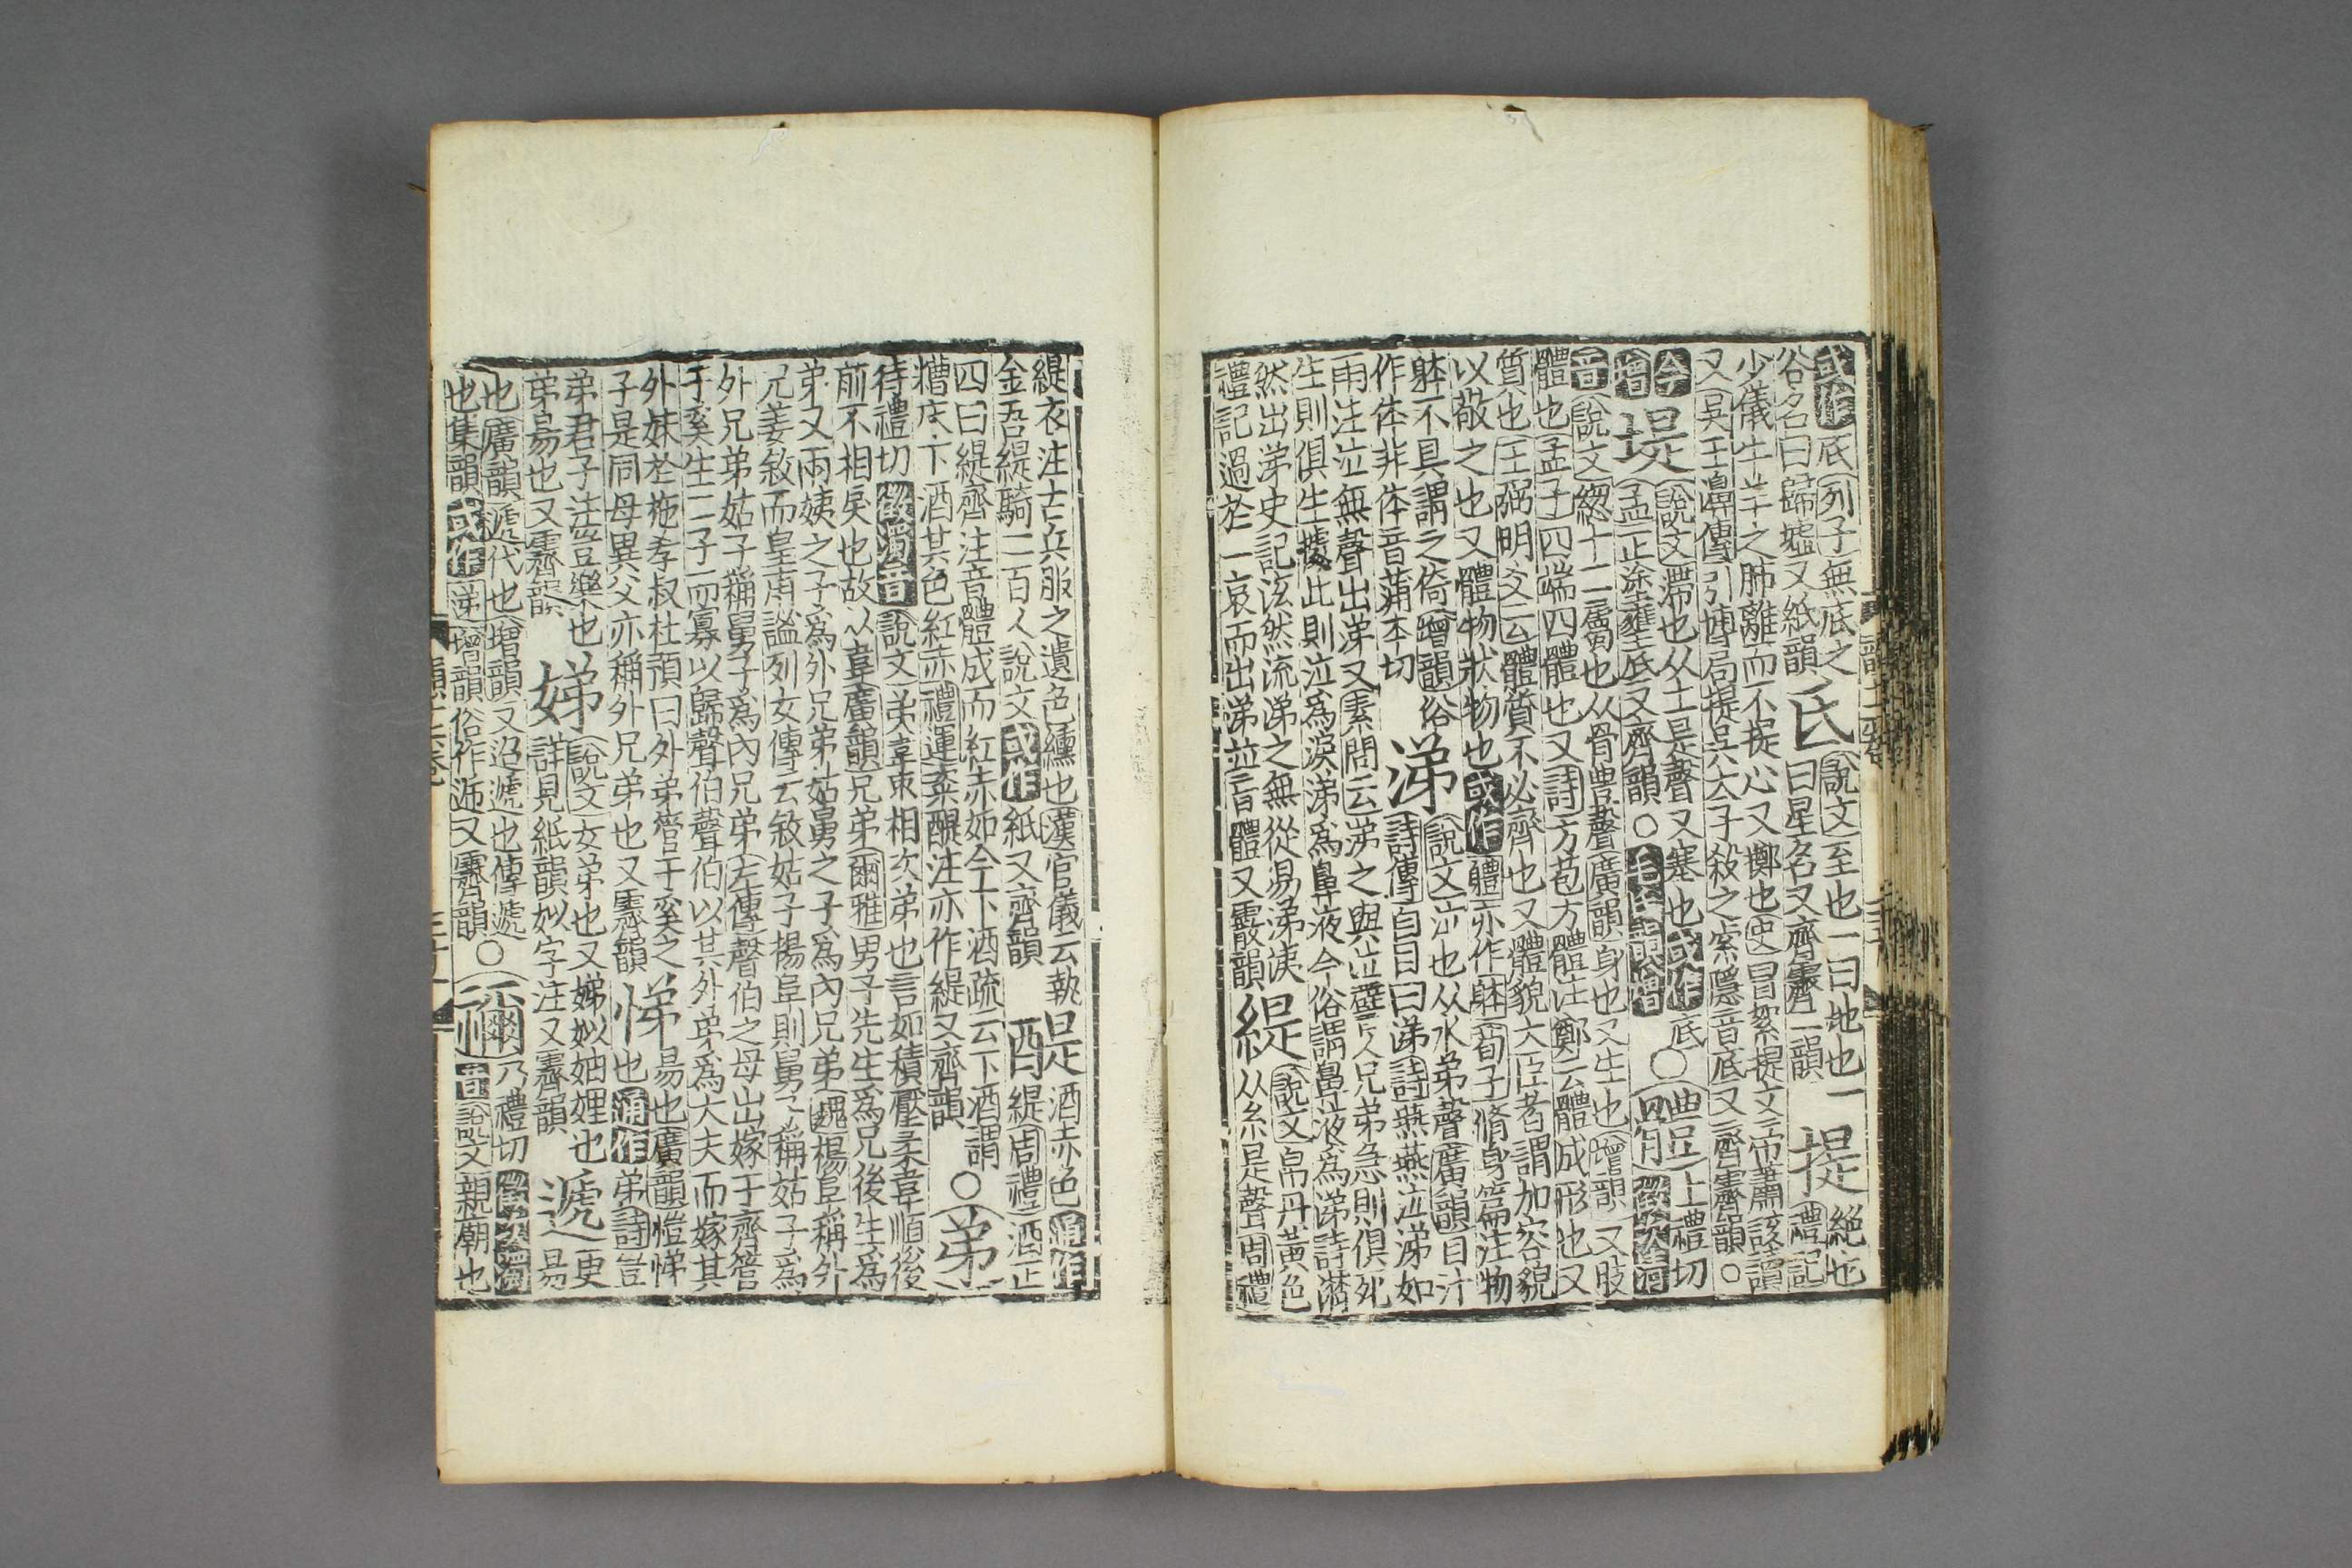 或作 底 列子無底之
谷名曰歸墟又紙韻
氐 說文至也一曰地也一
曰星名又齊霽二韻
提 絕也
禮記
少儀牛羊之肺離而不提心又擲也史冒絮提文帝蕭該讀
又吳王濞傳引博局提吳太子殺之索隱音底又齊霽韻○
今增 堤 說文滯也从土是聲又塞也或作 底
孟 正塗壅底又齊韻○
○體 土禮切
音 說文緫十二屬也从骨豊聲廣韻身也又生也增韻又肢
體也孟子四端四體也又詩方苞方體注鄭云體成形也又
質也王弼明爻云體質不必齊也又體貌大臣者謂加容貌
以敬之也又體物狀物也或作軆亦作躰荀子脩身篇注物
躰不具謂之倚增韻俗
作体非体音蒲本切
涕 說文泣也从水弟聲廣韻目汁
詩傳自目曰涕詩燕燕泣涕如
雨注泣無聲出涕又素問云涕之與泣譬人兄弟急則俱死
生則俱生據此則泣爲淚涕爲鼻液今俗謂鼻液爲涕詩濟
然出涕史記泫然流涕之無從易涕洟
禮記過於一哀而出涕並言體又霽韻
緹 說文帛丹黃色
从糸是聲周禮
緹衣注古兵服之遺色纁也漢官儀云執
金吾緹騎二百人說文或作 紙又齊韻
醍 酒赤色通作
緹周禮酒正
四曰緹齊注音體成而紅赤如今下酒疏云下酒謂
糟床下酒其色紅赤禮運粢醍注亦作緹又齊韻
○弟
待禮切 徵濁音 說文弟韋束相次弟也言如積壓柔韋順後
前不相戾也故以韋廣韻兄弟爾雅男子先生爲兄後生爲
弟又兩姨之子爲外兄弟姑舅之子爲內兄弟魏楊阜稱外
兄姜敘而皇甫謐列女傳云敘姑子楊阜則舅子稱姑子爲
外兄弟姑子稱舅子爲內兄弟左傳聲伯之母出嫁于齊管
于奚生二子而寡以歸聲伯聲伯以其外弟爲大夫而嫁其
外妹於施孝叔杜預曰外弟管于奚之
子是同母異父亦稱外兄弟也又霽韻
悌 易也廣韻愷悌
也通作 弟詩豈
弟君子注豈樂也
弟易也又霽韻
娣 說文女弟也又娣姒妯娌也
詳見紙韻姒字注又霽韻
遞 更
易
也廣韻遞代也增韻又迢遞也傳遞
也集韻或作 递增韻俗作逓又霽韻○
禰 乃禮切
音說文親廟也